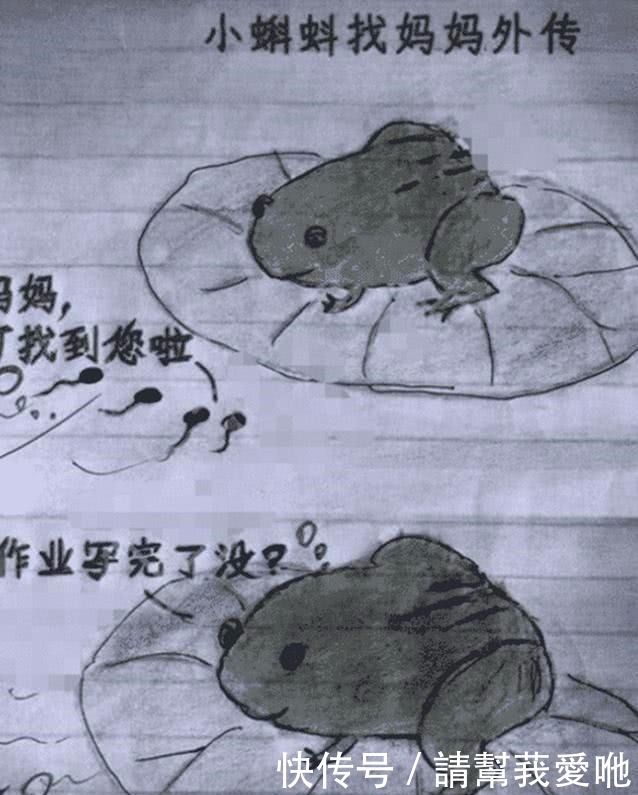 小蝌蚪找妈妈外传
妈妈，
可找到您啦
作业写完了没？
快传号 / 請幫莪愛吔